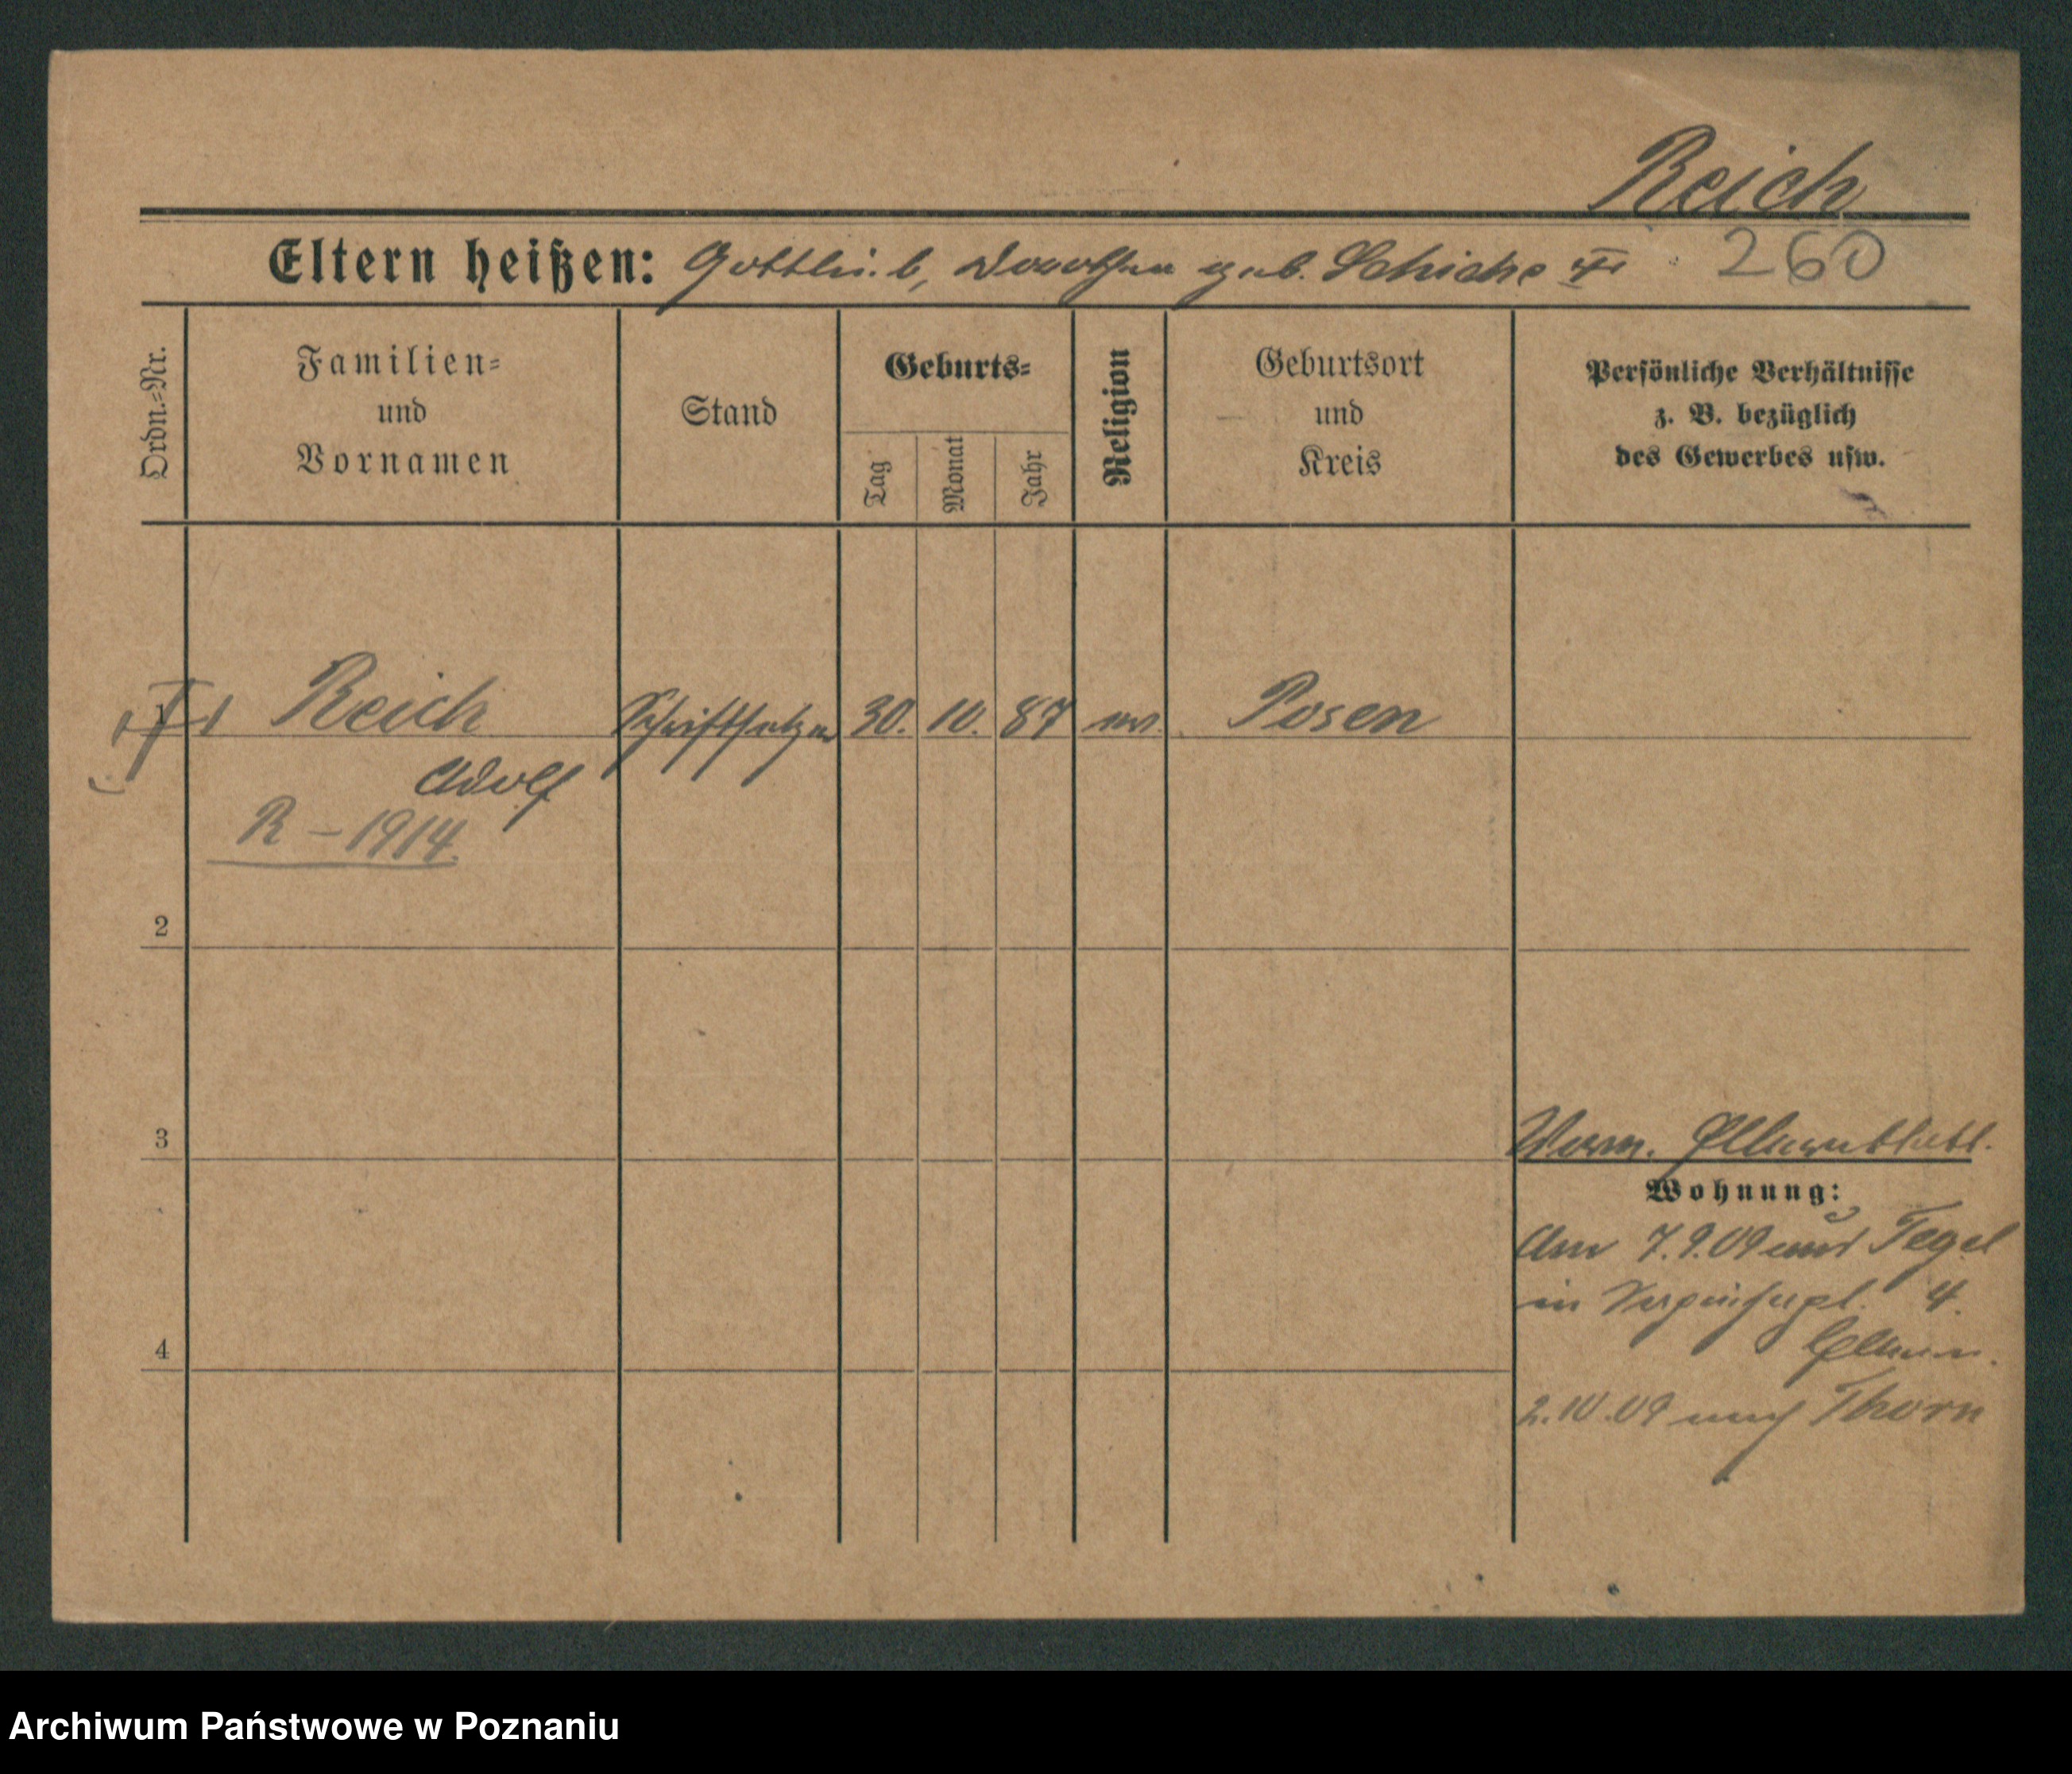 Reich
Eltern heißen: Gottlieb, Dorothea geb. Schicke 260
Ordn.-Nr.
Familien-
und
Vornamen
Stand
Geburts-
Tag
Monat
Jahr
Religion
Geburtsort
und
Kreis
Persönliche Verhältnisse
z. B. bezüglich
des Gewerbes usw.
1 Reich Schriftsetzer 30. 10. 87 ev. Posen
Adolf
R – 1914.
2
3
Wohnung:
7.9.09 Tegel
in 4.
4
2.10.09 nach Thorn
Archiwum Państwowe w Poznaniu